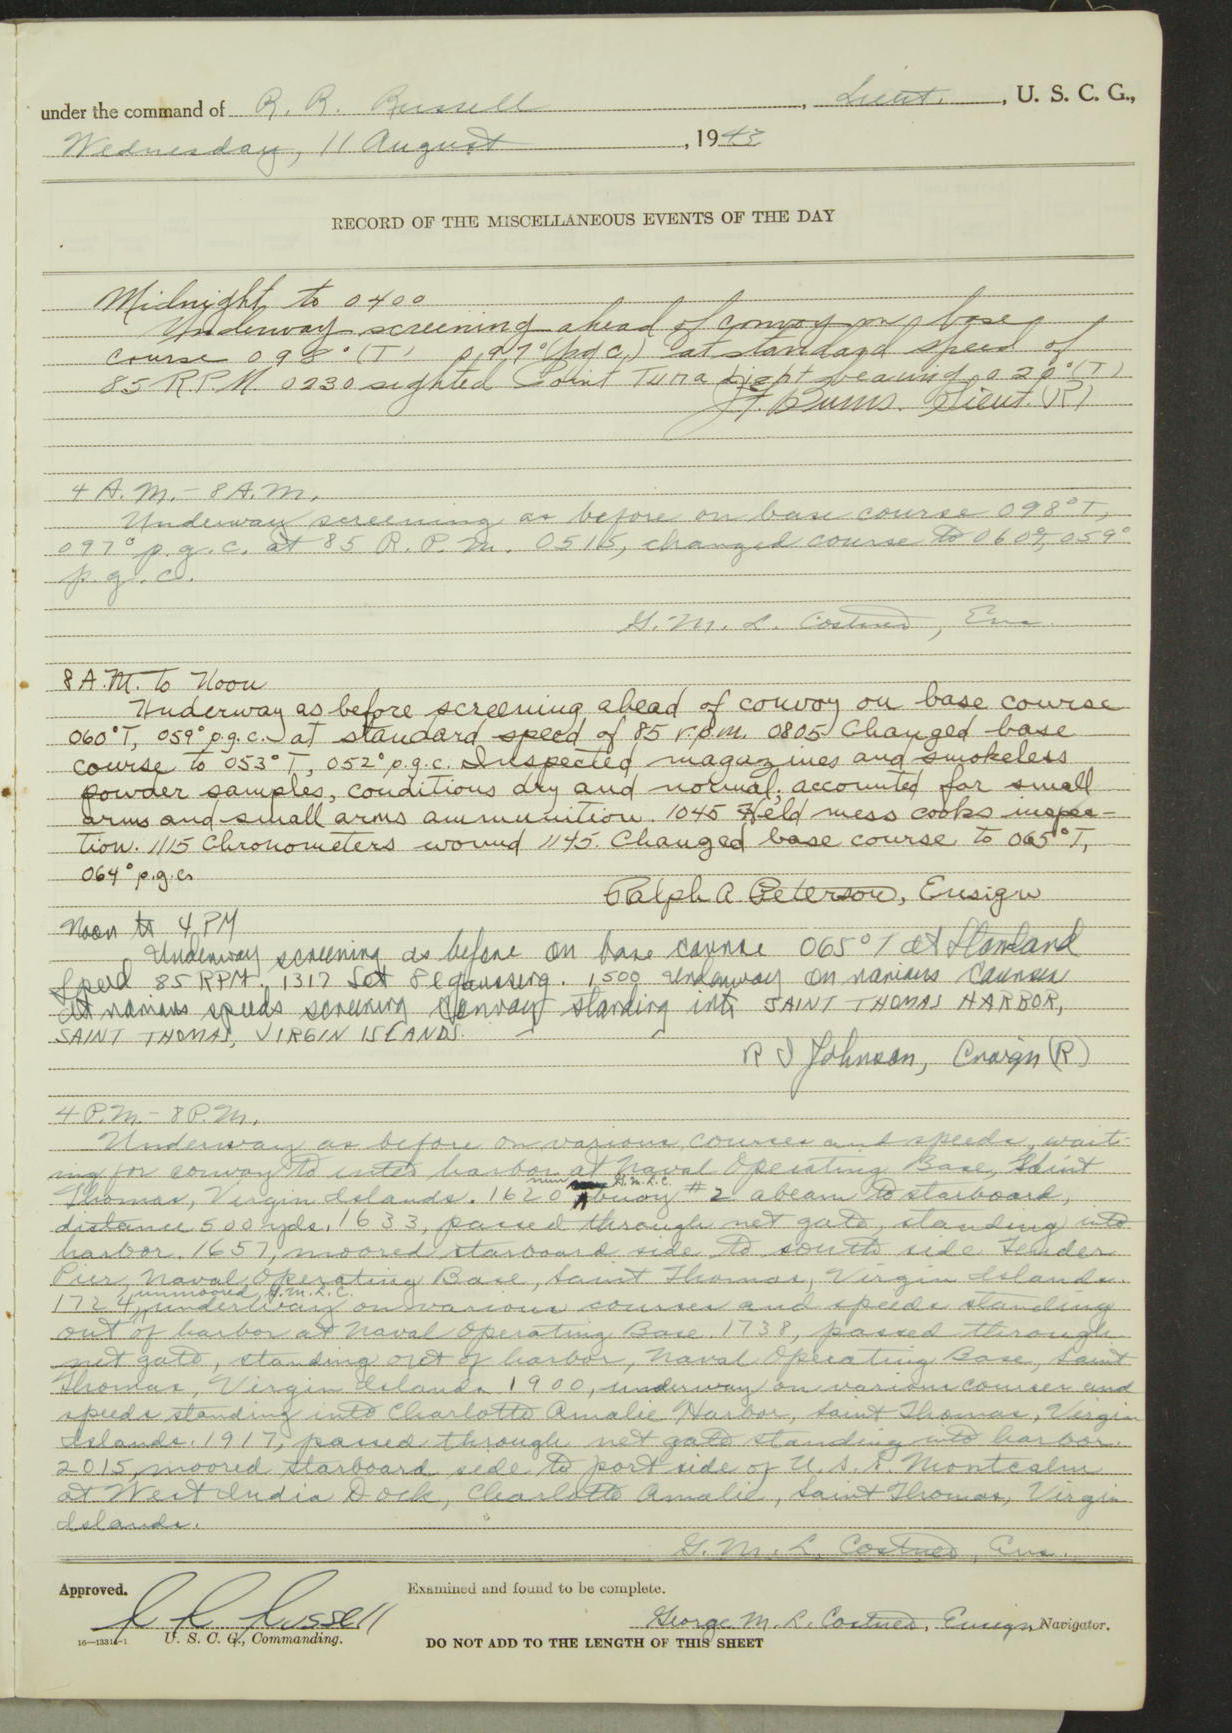 under the command of R. R. Russell, Lieut., U. S. C. G.,
Wednesday, 11 August, 1943
RECORD OF THE MISCELLANEOUS EVENTS OF THE DAY
Midnight to 0400
Underway screening ahead of convoy on base
course 098° (T) 097° (pgc) at standard speed of
85 R.P.M. 0230 sighted Point Tuna Light bearing 020° (T)
J.F. Burns. Lieut. (JR)
4 A.M. - 8 A.M.
Underway screening as before on base course 098° T,
097° p.g.c. at 85 R.P.M. 0515, changed course to 060° T, 059°
p.g.c.
G. M. L. Costner, Ens.
8 A.M. to Noon
Underway as before screening ahead of convoy on base course
060° T, 059° p.g.c. at standard speed of 85 r.p.m. 0805 Changed base
course to 053° T, 052° p.g.c. Inspected magazines and smokeless
powder samples, conditions dry and normal; accounted for small
arms and small arms ammunition. 1045 Held mess cooks inspec-
tion. 1115 Chronometers wound 1145. Changed base course to 065° T,
064° p.g.c.
Ralph A. Peterson, Ensign
Noon to 4 PM
Underway screening as before on base course 065° T at Standard
Speed 85 RPM. 1317 Set Degaussing. 1500 Underway on various courses
at various speeds screening convoy standing into SAINT THOMAS HARBOR,
SAINT THOMAS, VIRGIN ISLANDS.
R J Johnson, Ensign (R)
4 P.M. - 8 P.M.
Underway as before on various courses and speeds, wait-
ing for convoy to enter harbor at Naval Operating Base, Saint
Thomas, Virgin Islands. 1620 nun G.M.L.C. buoy #2 abeam to starboard,
distance 500 yds. 1633, passed through net gate, standing into
harbor. 1657, moored starboard side to south side Tender
Pier, Naval Operating Base, Saint Thomas, Virgin Islands.
1724, unmoored, G.M.L.C. underway on various courses and speeds standing
out of harbor at Naval Operating Base. 1738, passed through
net gate, standing out of harbor, Naval Operating Base, Saint
Thomas, Virgin Islands. 1900, underway on various courses and
speeds standing into Charlotte Amalie Harbor, Saint Thomas, Virgin
Islands. 1917, passed through net gate standing into harbor.
2015, moored starboard side to port side of U.S.S. Montcalm
at West India Dock, Charlotte Amalie, Saint Thomas, Virgin
Islands.
G. M. L. Costner, Ens.
Approved. Examined and found to be complete.
R R Russell George M. L. Costner, Ensign Navigator.
16—13314-1 U. S. C. G., Commanding.
DO NOT ADD TO THE LENGTH OF THIS SHEET